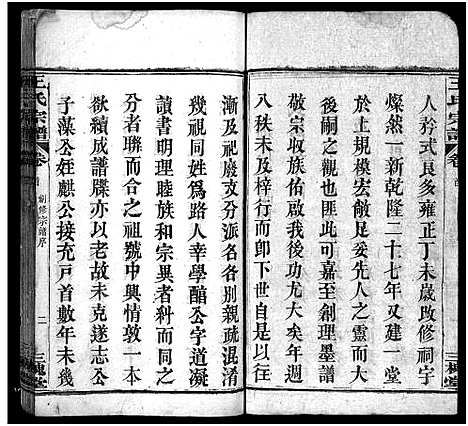 人矜式良多雍正丁未歲改修祠宇
燦然一新乾隆二十七年又建一堂
其間規模宏敞足妥先人之靈而大
後嗣之觀也匪此可嘉至創理墨譜
敬宗收族佑啟我後以垂無疆時年
八秩未及梓行而卽下世自兹以後
王氏宗譜
卷首
創修宗譜序
二
三槐堂
漸及祀廢支分派名各別親疎混淆
幾視同姓爲路人幸學酷公字道凝
讀書明理睦族和宗異者科而同之
分者聯而合之祖號中興情敦一本
欲續成譜牒亦以老故未克遂志公
子藻公姪麒公接充戸首數年未幾
王氏宗譜
卷首
三槐堂